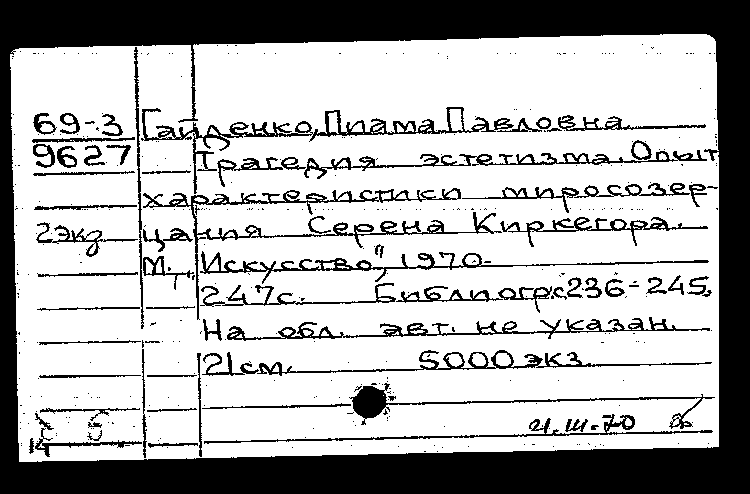 69-3 Гайденко, Пиама Павловна.
9627 Трагедия эстетизма. Опыт
характеристики миросозер-
2экз цания Серена Киркегора.
М., "Искусство", 1970.
247с. Библиогр.с.236-245.
На обл. авт. не указан.
21см. 5000 экз.
21.III.70
14